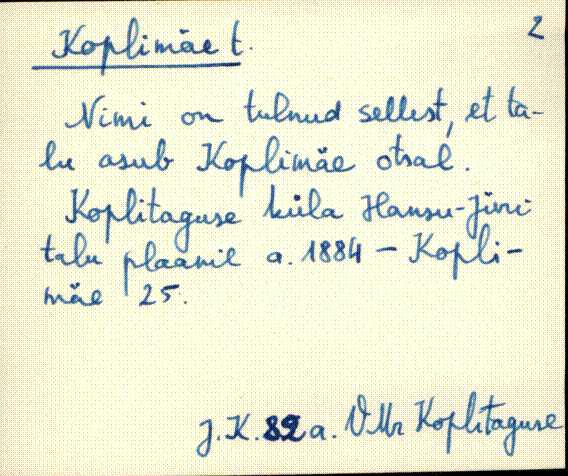 2
Koplimäe t.
Nimi on tulnud sellest, et ta-
lu asub Koplimäe otsal.
Koplitaguse küla Hansu-Jüri
talu plaanil a. 1884 - Kopli-
mäe 25.
J.K. 82 a. VMr Koplitaguse